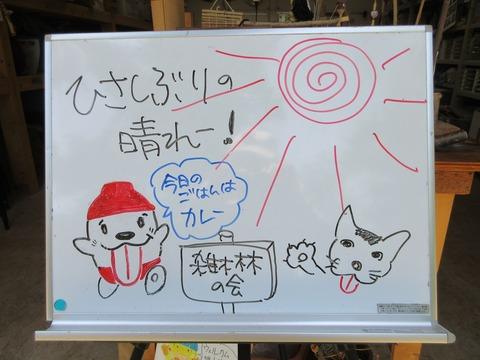 ひさしぶりの
晴れー!
今日の
ごはんは
カレー
雑木林
の会